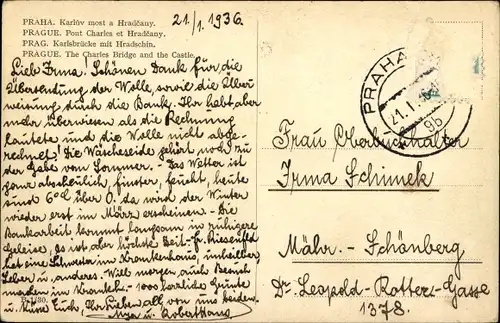 PRAHA. Karlův most a Hradčany.
PRAGUE. Pont Charles et Hradčany.
PRAG. Karlsbrücke mit Hradschin.
PRAGUE. The Charles Bridge and the Castle.
21/1. 1936.
Liebe Irma! Schönen Dank für die
Übersendung der Wolle, sowie die Über
weisung durch die Bank. Ihr habt aber
mehr überwiesen als die Rechnung
lautete und die Wolle nicht abge-
rechnet! Die Wäscheseide gehört noch zu
der Gabe vom Sommer. - Das Wetter ist
ganz abscheulich, finster, feucht, heute
sind 6° über 0. da wird der Winter
wieder erst im März erscheinen. - Die
Bankarbeit kommt langsam in ruhigere
Geleise, es ist aber höchste Zeit. - Fr.
ist eine Schwester im Krankenhaus, unheilbar
Leber u. anderes. Will morgen auch Besuch
machen im Krankenh. - 1000 herzliche Grüsse
u. Küsse Euch, Ihr Lieben all von uns beiden.
u. Robert
B 1/30.
PRAHA
21. I.
9b
Frau Oberbuchhalter
Irma Schimek
Mähr. - Schönberg
Dr. Leopold - Rotter - Gasse
1378.